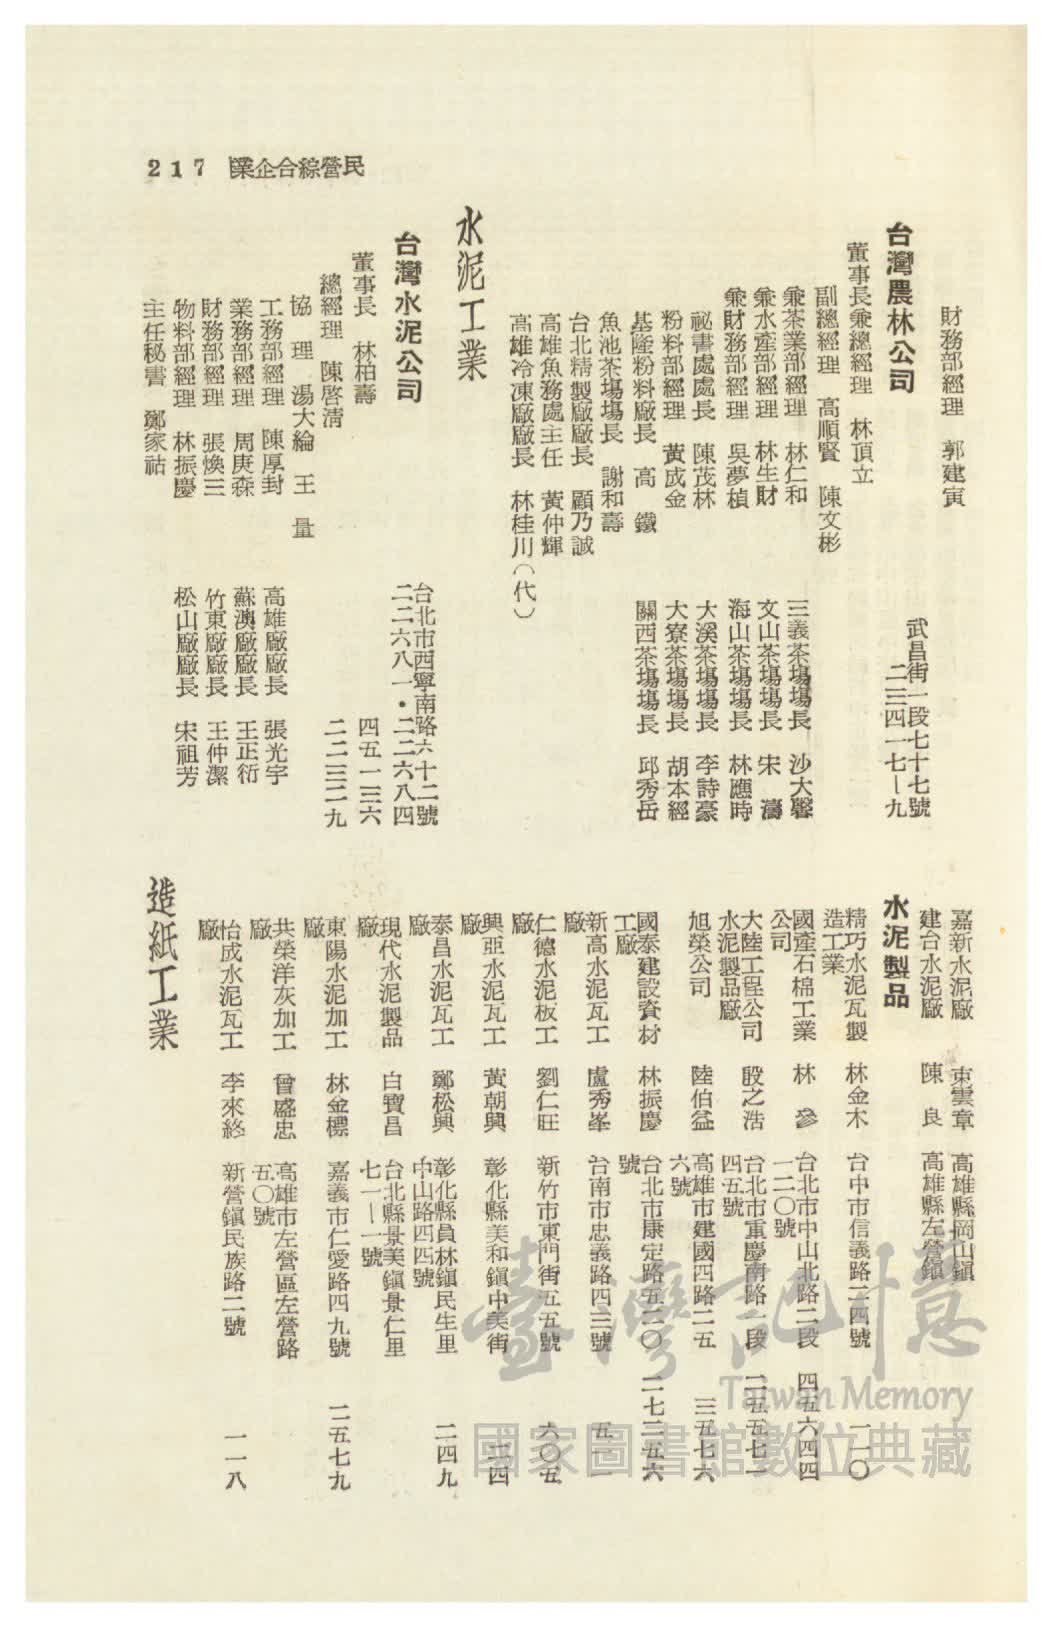 217 民營綜合企業
財務部經理 郭建寅
台灣農林公司 武昌街一段七十七號
二三四一七—九
董事長兼總經理 林頂立
副總經理 高順賢 陳文彬
兼茶業部經理 林仁和 三義茶場場長 沙大馨
兼水產部經理 林生財 文山茶場場長 宋濤
兼財務部經理 吳夢楨 海山茶場場長 林應時
祕書處處長 陳茂林 大溪茶場場長 李詩豪
粉料部經理 黃成金 大寮茶場場長 胡本經
基隆粉料廠長 高鐵 關西茶場場長 邱秀岳
魚池茶場場長 謝和壽
台北精製廠廠長 顧乃誠
高雄魚務處主任 黃仲輝
高雄冷凍廠廠長 林桂川(代)
水泥工業
台灣水泥公司 台北市西寧南路六十二號
二二六八一・二二六八四
董事長 林柏壽 四五一三六
總經理 陳啓清 二二三二九
協理 湯大綸 王量
工務部經理 陳厚封 高雄廠廠長 張光宇
業務部經理 周庚森 蘇澳廠廠長 王正衍
財務部經理 張煥三 竹東廠廠長 王仲潔
物料部經理 林振慶 松山廠廠長 宋祖芳
主任秘書 鄭家祜
嘉新水泥廠 束雲章 高雄縣岡山鎮
建台水泥廠 陳良 高雄縣左營鎮
水泥製品
精巧水泥瓦製 林金木 台中市信義路二四號 一一〇
造工業
國產石棉工業 林參 台北市中山北路二段 四五六四四
公司 一二〇號
大陸工程公司 殷之浩 台北市重慶南路一段 二五五七一
水泥製品廠 四五號
旭榮公司 陸伯益 高雄市建國四路二五 三五七六
六號
國泰建設資材 林振慶 台北市康定路五二〇 二七二五六
工廠 號
新高水泥瓦工 盧秀峯 台南市忠義路四三號 五一一
廠
仁德水泥板工 劉仁旺 新竹市東門街五五號 六〇五
廠
興亞水泥瓦工 黃朝興 彰化縣美和鎮中美街 二四
廠
泰昌水泥瓦工 鄭松興 彰化縣員林鎮民生里 二四九
廠 中山路四四號
現代水泥製品 白寶昌 台北縣景美鎮景仁里
廠 七一—一號
東陽水泥加工 林金標 嘉義市仁愛路四九號 二五七九
廠
共榮洋灰加工 曾盛忠 高雄市左營區左營路
廠 五〇號
怡成水泥瓦工 李來終 新營鎮民族路二號 一一八
廠
造紙工業
臺灣記憶
Taiwan Memory
國家圖書館數位典藏